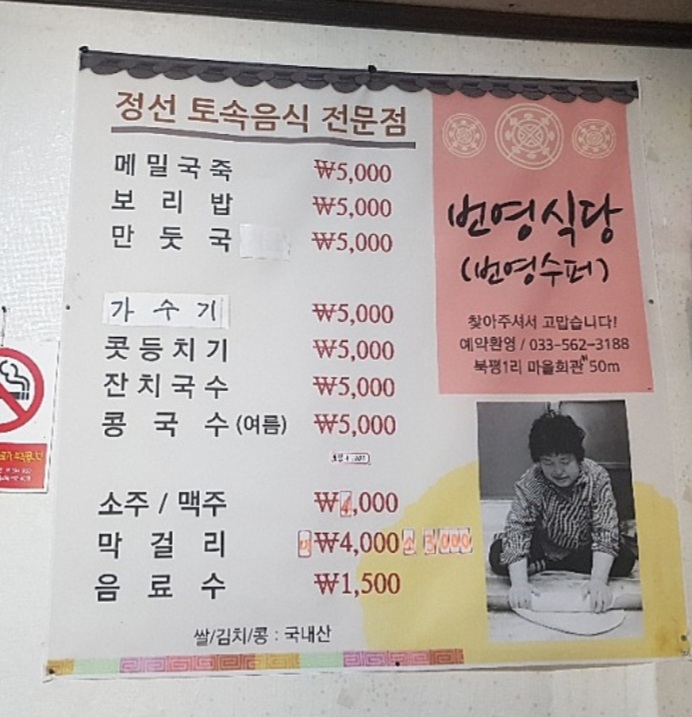 정선 토속음식 전문점
메밀국죽 ₩5,000
보리밥 ₩5,000
만둣국 ₩5,000
가수기 ₩5,000
콧등치기 ₩5,000
잔치국수 ₩5,000
콩국수(여름) ₩5,000
소주/맥주 ₩4,000
막걸리 ₩4,000 소 3,000
음료수 ₩1,500
쌀/김치/콩 : 국내산
번영식당
(번영수퍼)
찾아주셔서 고맙습니다!
예약환영 / 033-562-3188
북평1리 마을회관 50m